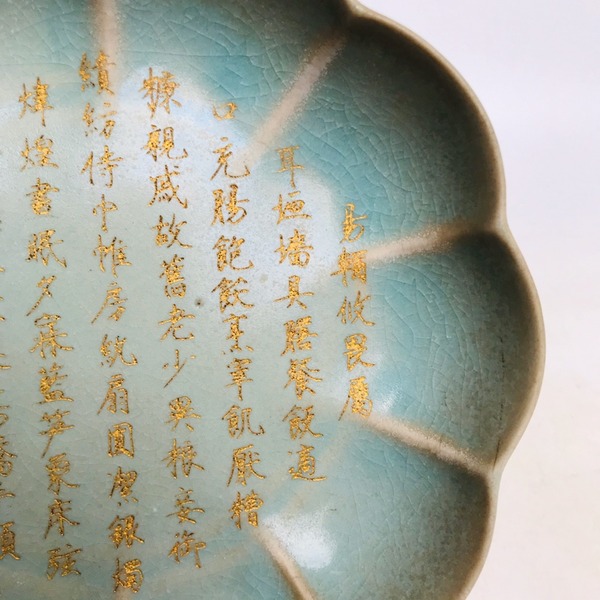 易輶攸畏屬
耳垣墻具膳餐飯適
口充腸飽飫烹宰飢厭糟
糠親戚故舊老少異糧妾御
績紡侍巾帷房紈扇圓潔銀燭
煒煌晝眠夕寐藍笋象床弦